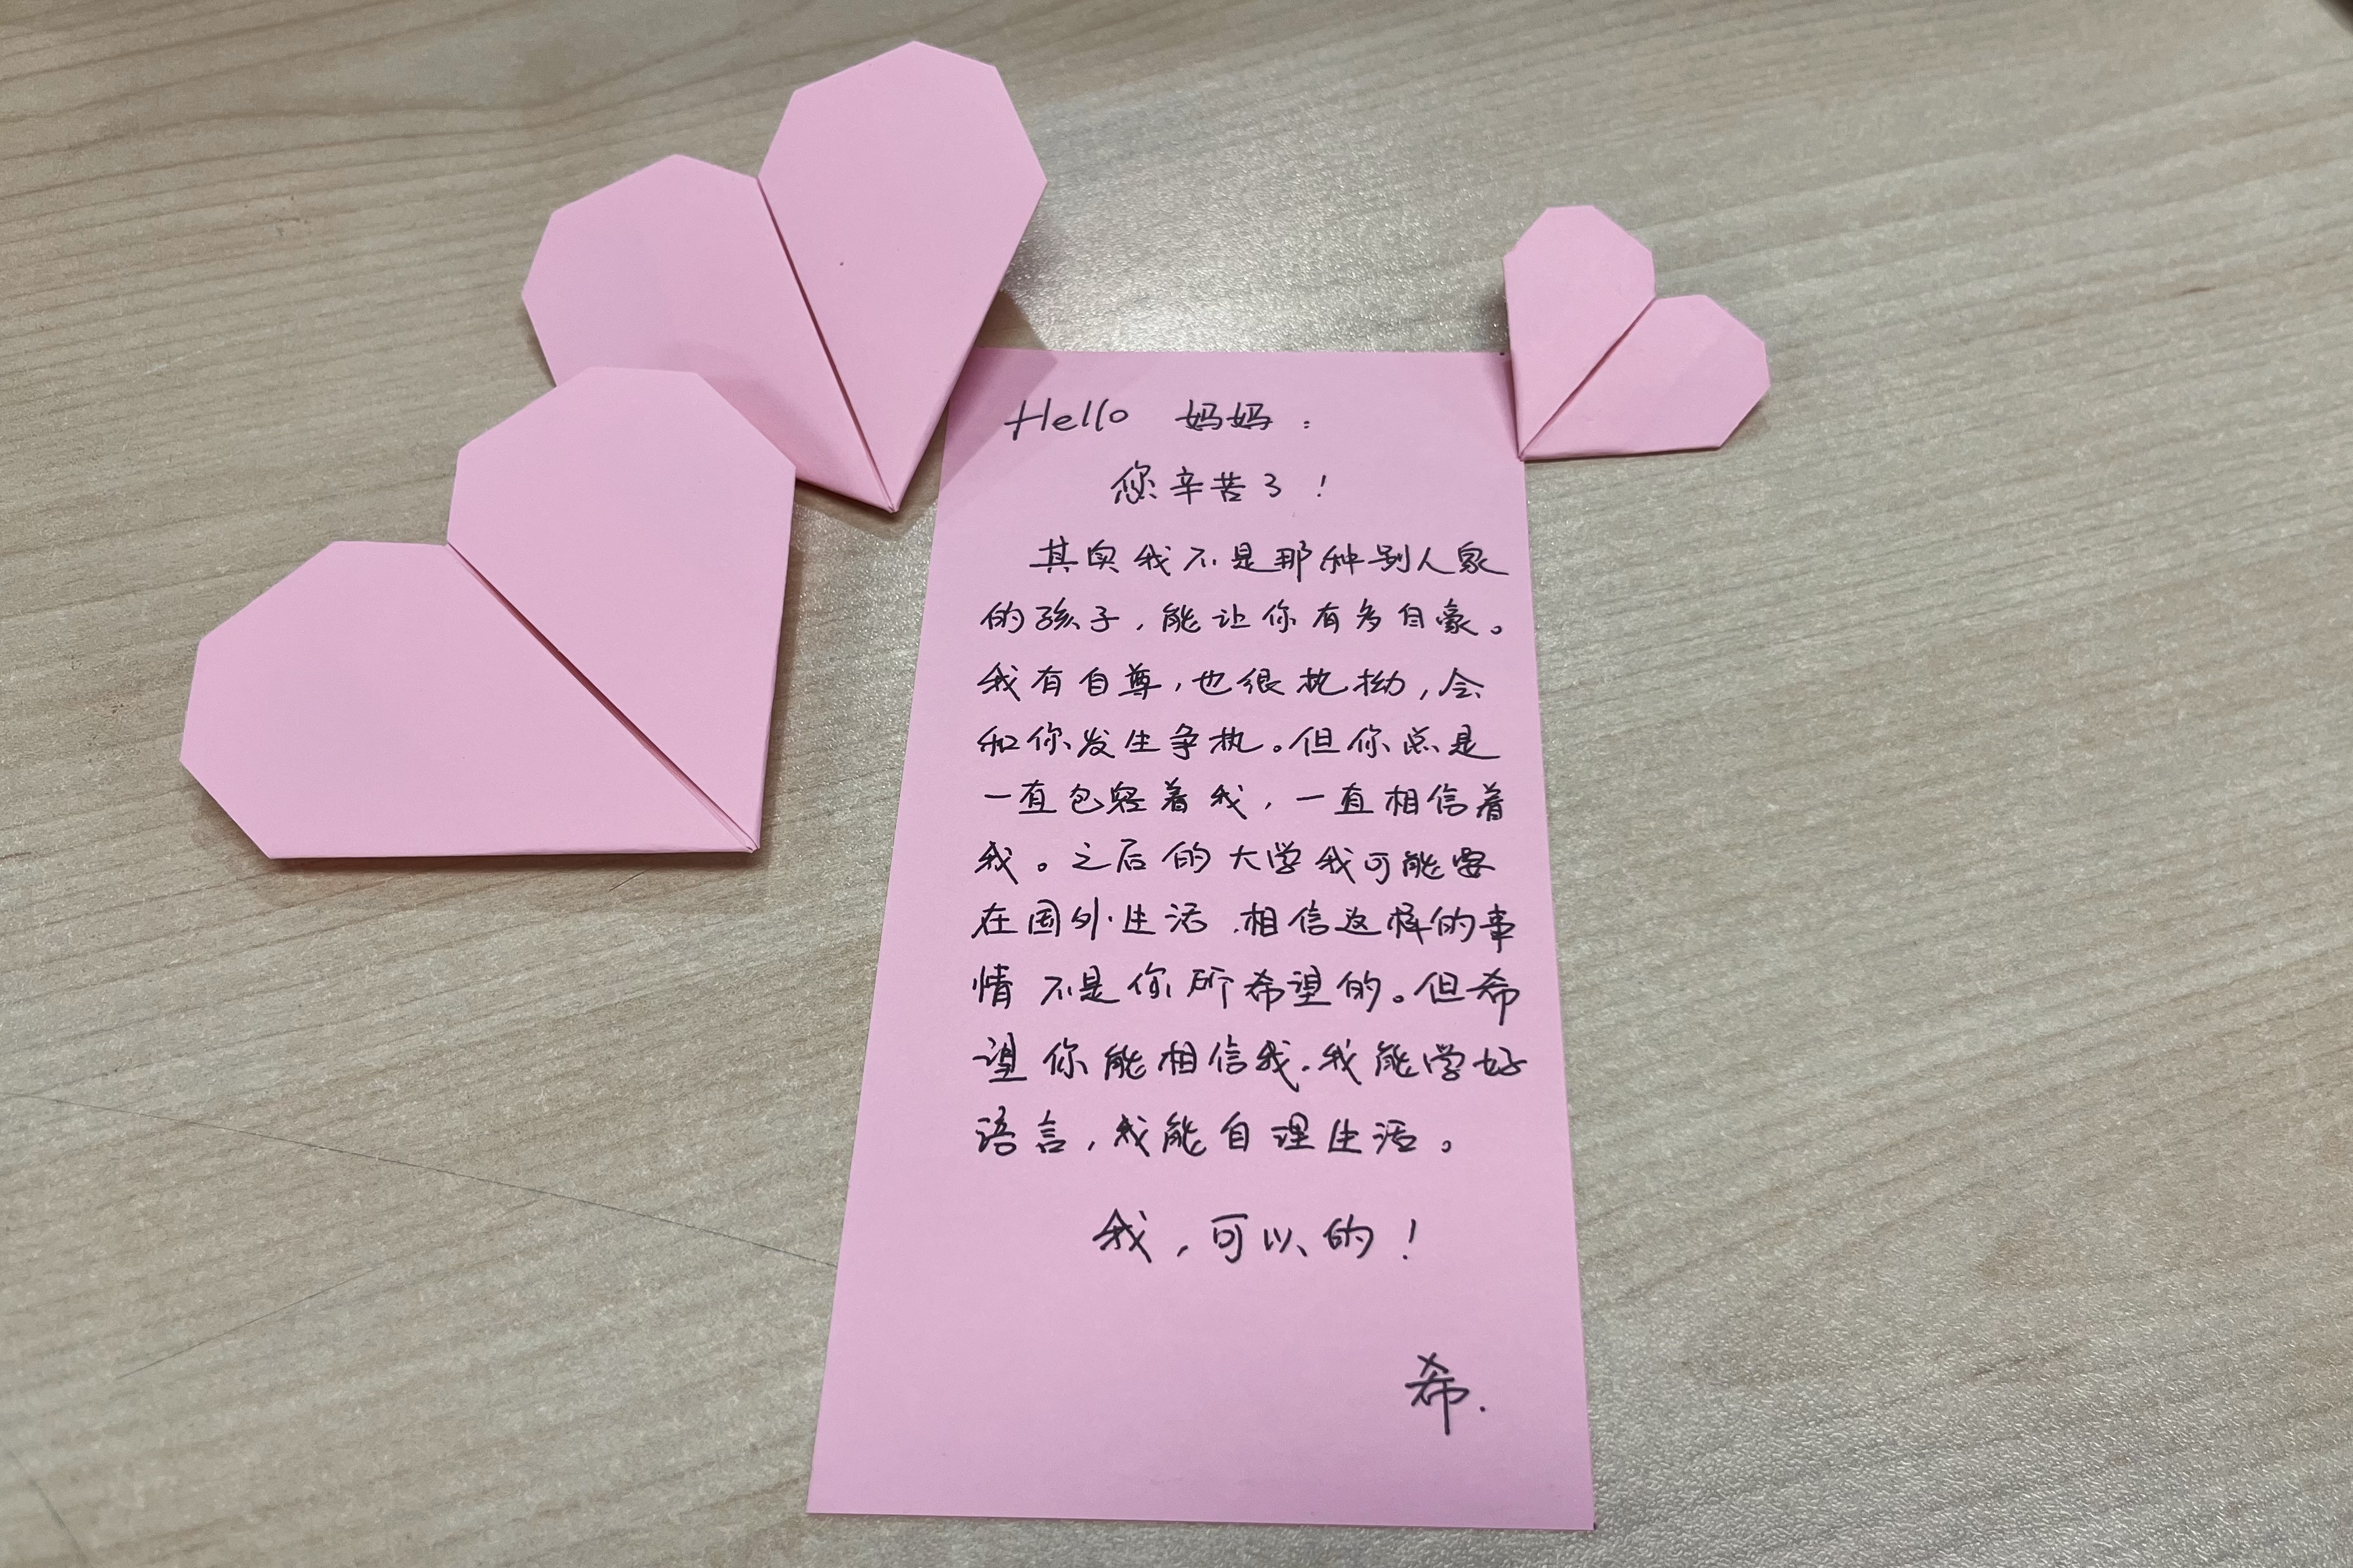 Hello 妈妈：
您辛苦了！
其实我不是那种别人家
的孩子，能让你有多自豪。
我有自尊，也很执拗，会
和你发生争执。但你总是
一直包容着我，一直相信着
我。之后的大学我可能要
在国外生活，相信这样的事
情不是你所希望的。但希
望你能相信我，我能学好
语言，我能自理生活。
我，可以的！
希.